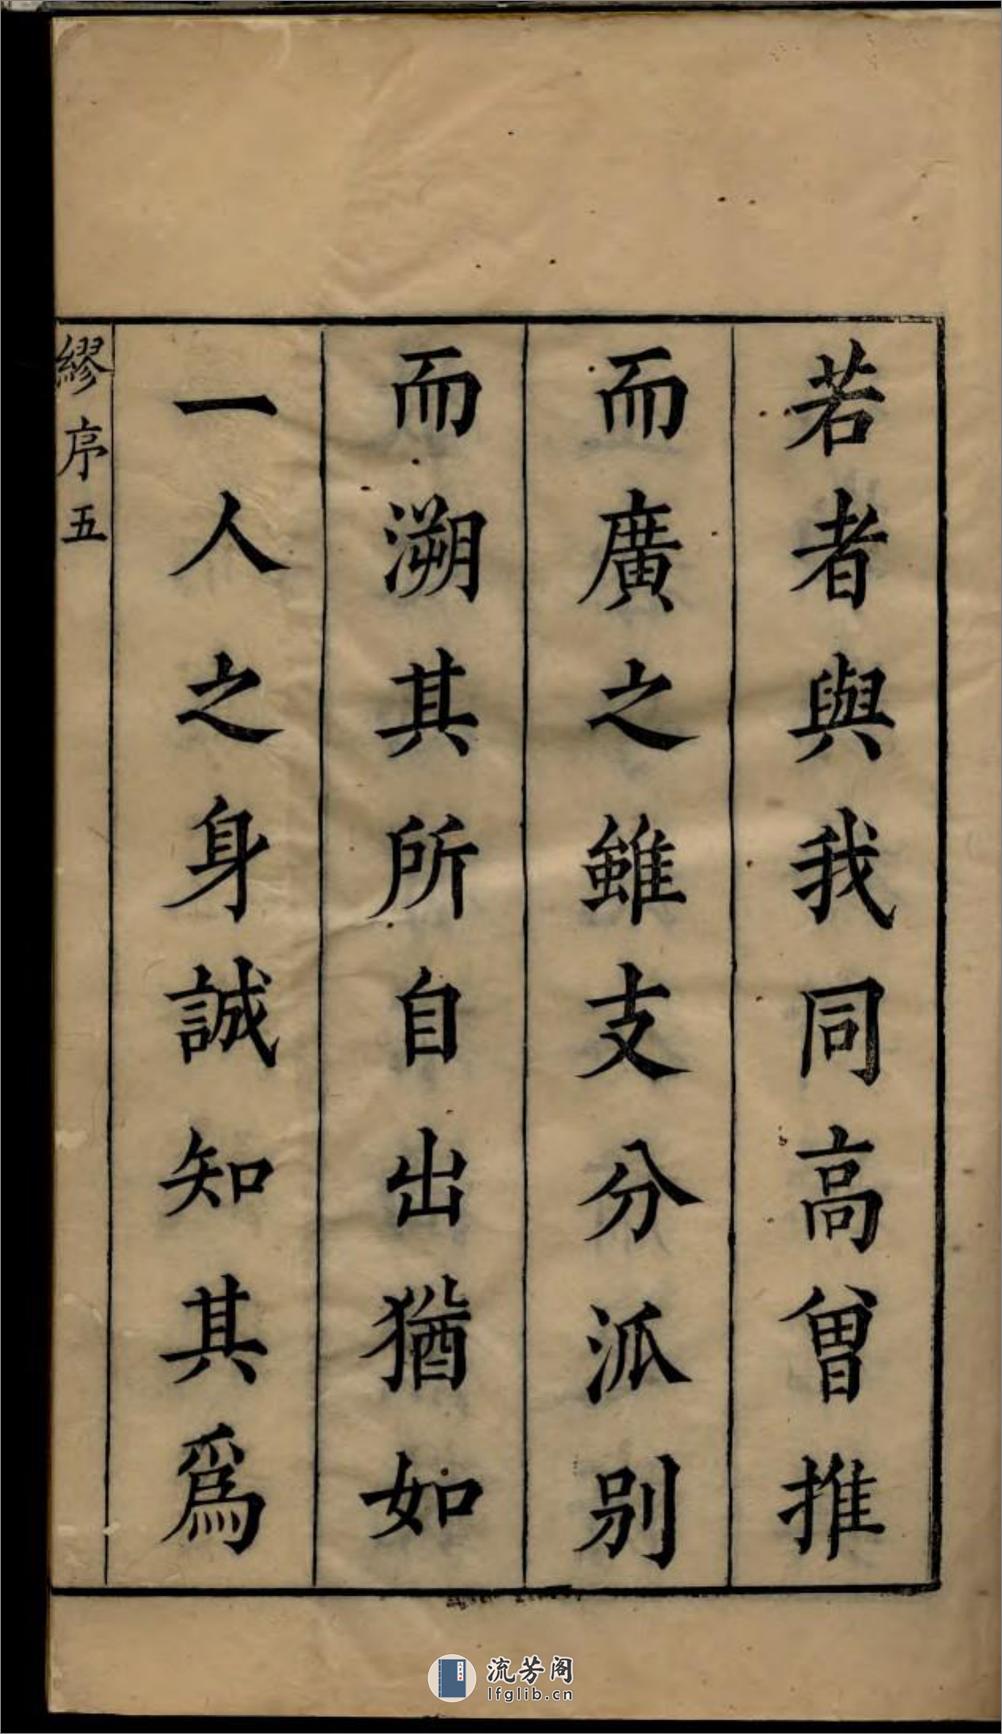 若者與我同高曾推
而廣之雖支分派别
而溯其所自出猶如
一人之身誠知其爲
繆序五
流芳阁
lfglib.cn